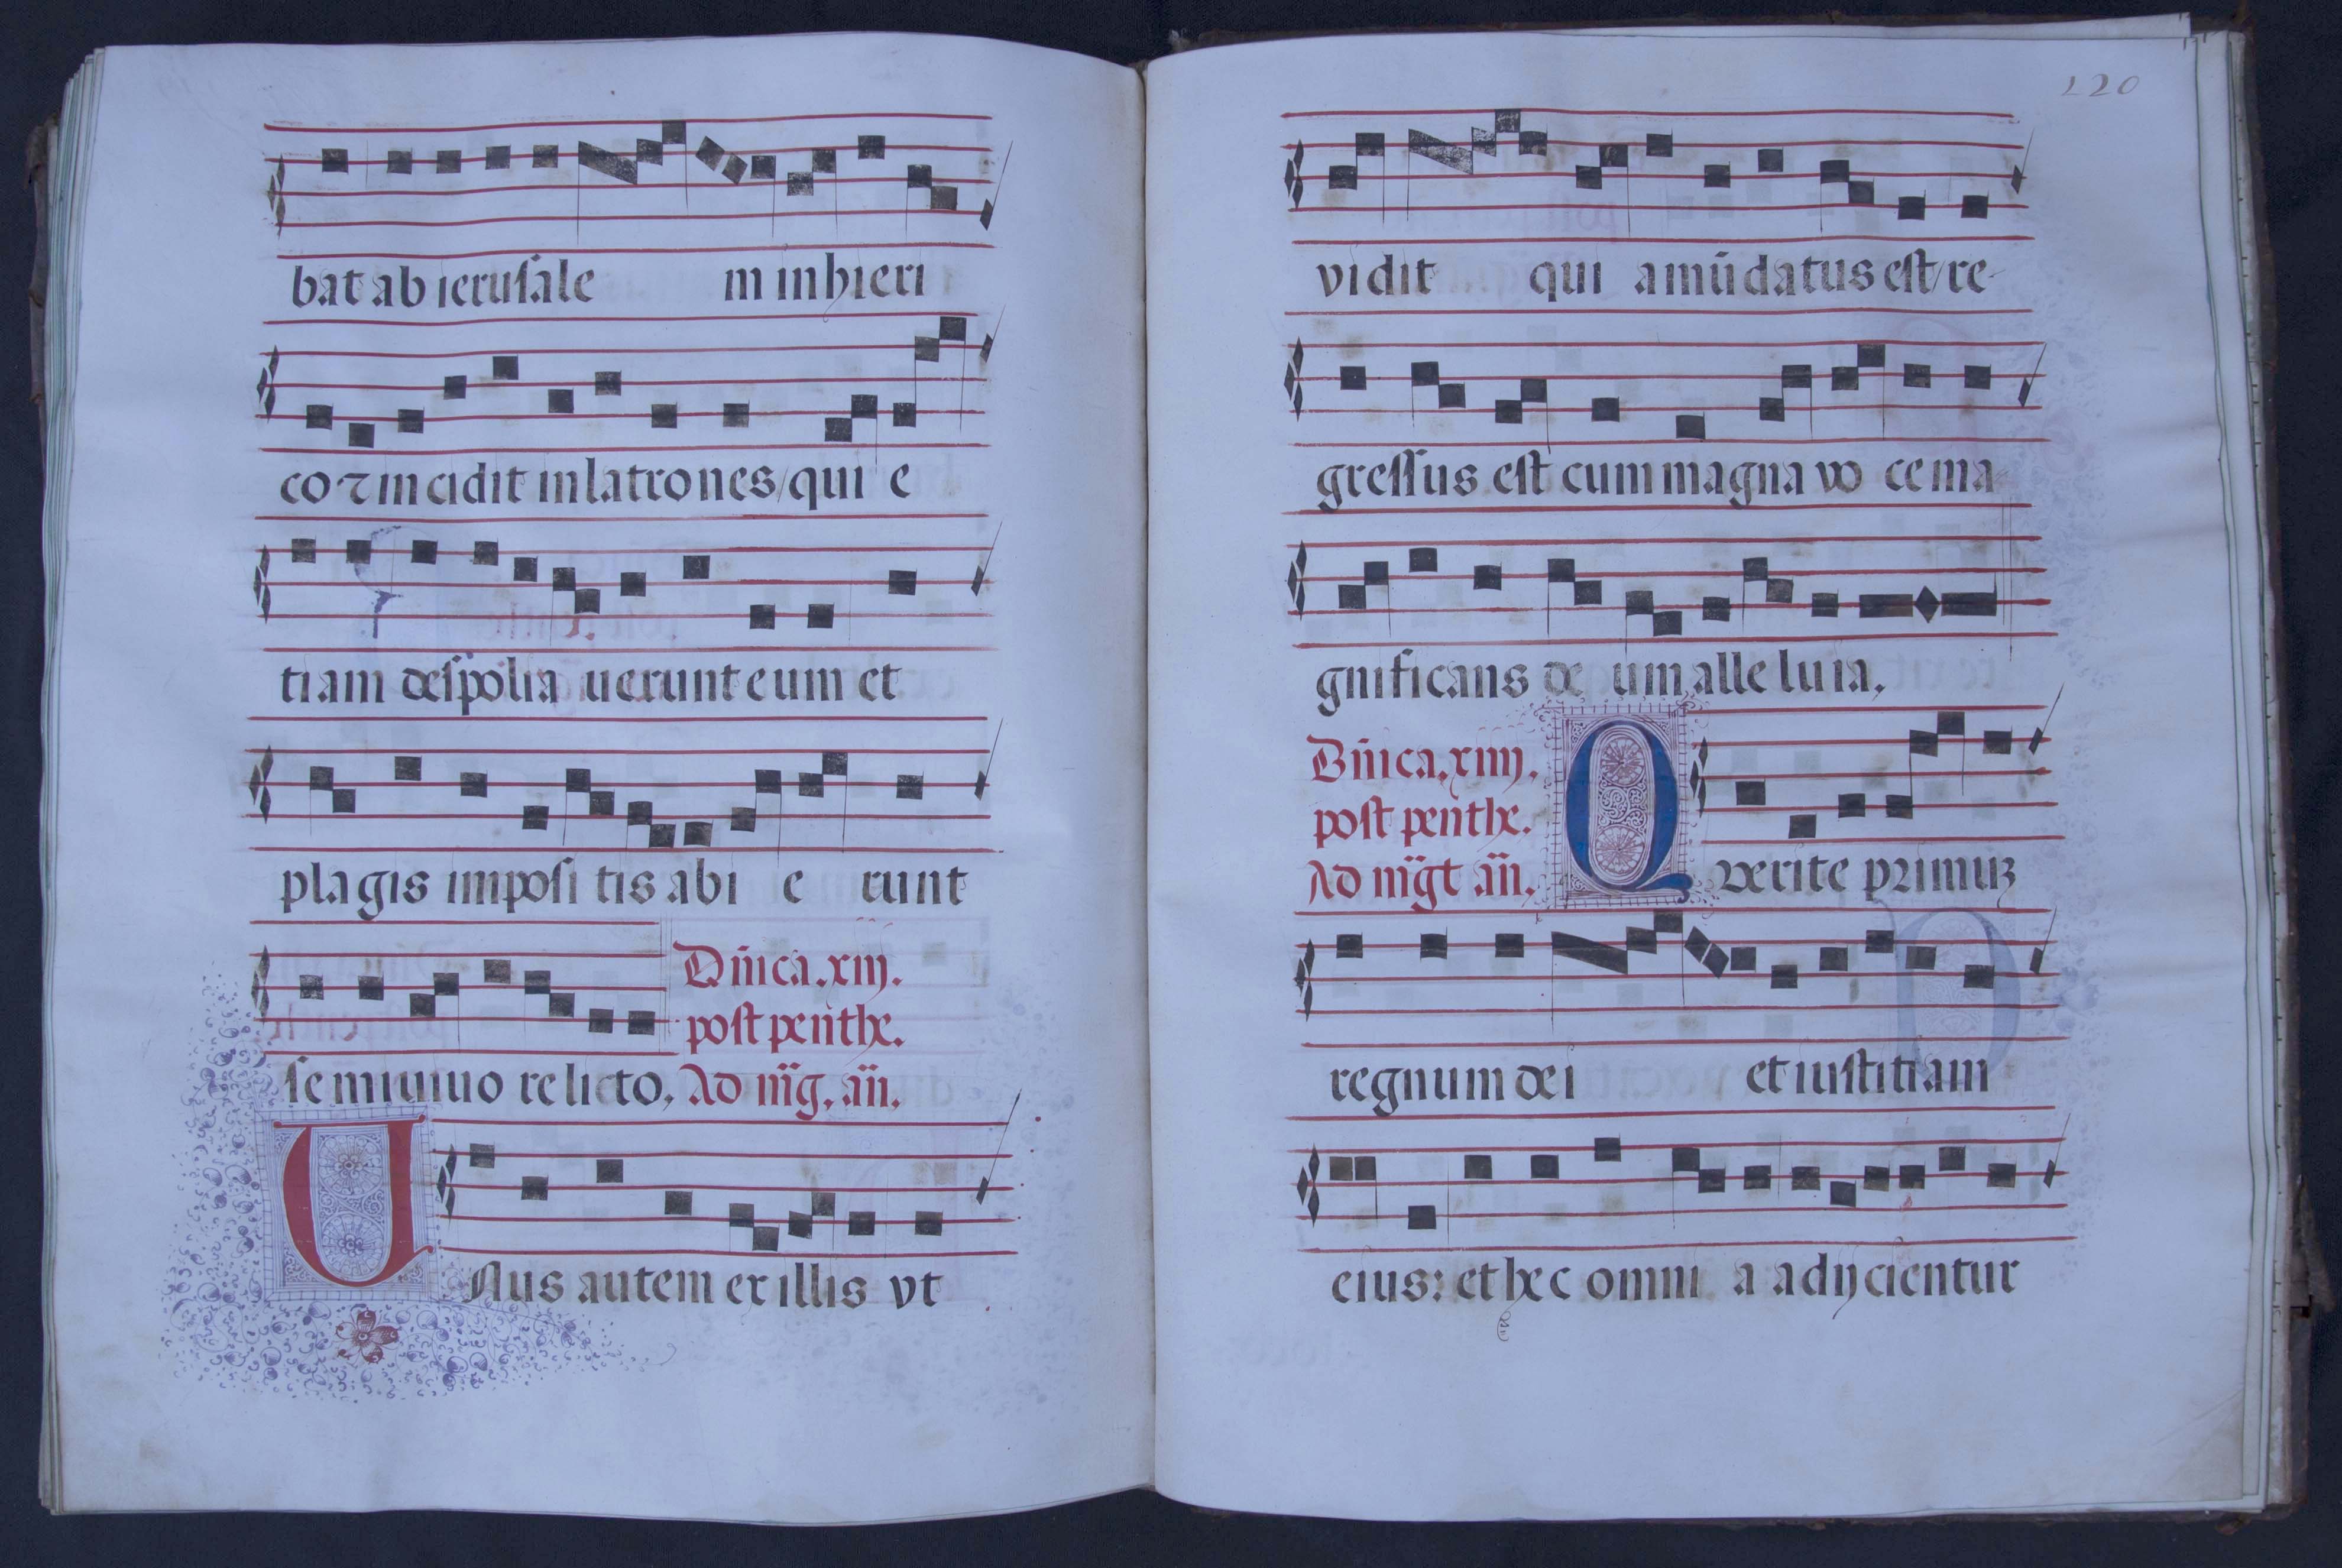 bat ab ierusale m in hieri
co ⁊ in cidit in latrones / qui e
tiam despolia uerunt eum et
plagis imposi tis abi e runt
se miuiuo relicto,
Dñica. xiij.
post penthe.
Ad m̄g. añ.
UNus autem ex illis vt
120
vidit qui amūdatus est / re-
gressus est cum magna vo ce ma-
gnificans de um alleluia.
Dñica. xiiij.
post penthe.
Ad m̄gt añ.
Querite primuꝫ
regnum dei et iustitiam
eius: et hec omni a adijcientur